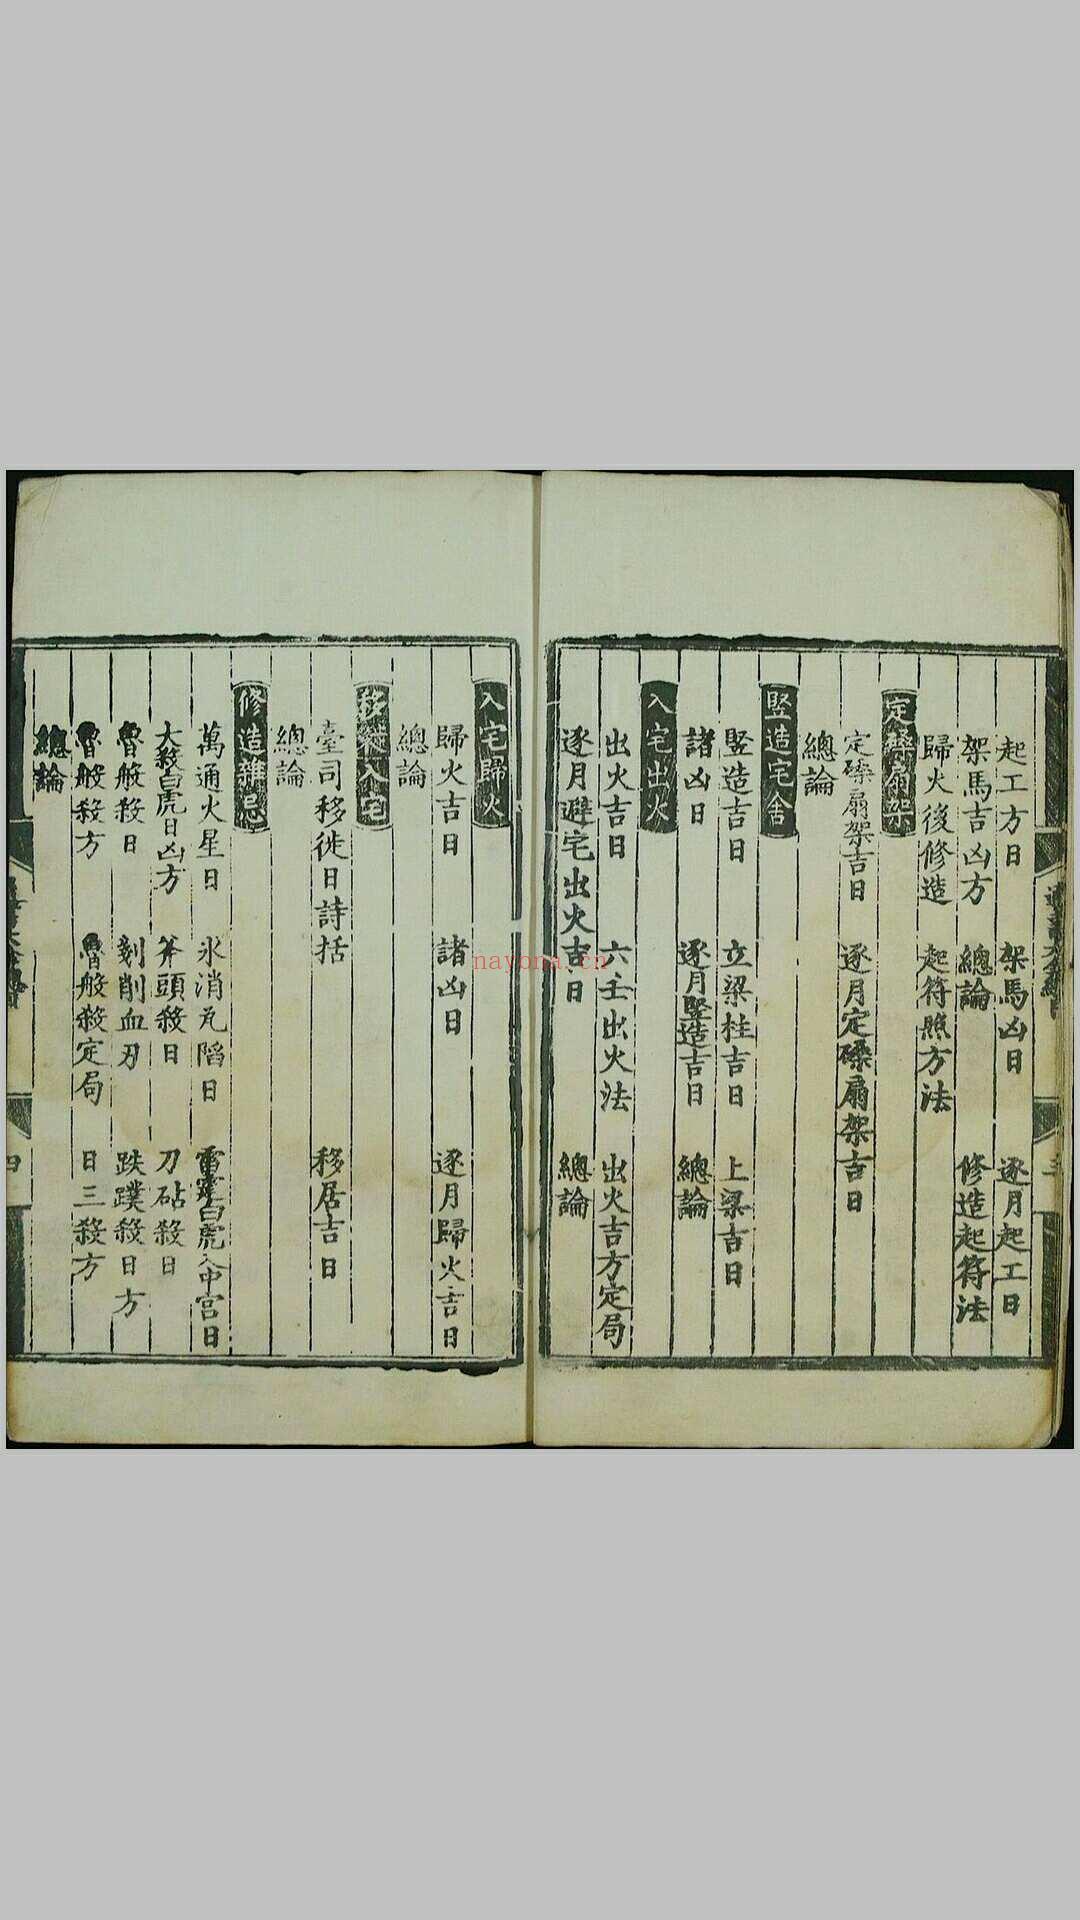 起工方日　架馬凶日　逐月起工日
架馬吉凶方　總論　修造起符法
歸火後修造　起符照方法
定磉扇架
定磉扇架吉日　逐月定磉扇架吉日
總論
竪造宅舍
竪造吉日　立梁柱吉日　上梁吉日
諸凶日　逐月竪造吉日　總論
入宅出火
出火吉日　六壬出火法　出火吉方定局
逐月避宅出火吉日　總論
入宅歸火
歸火吉日　諸凶日　逐月歸火吉日
總論
移徙入宅
臺司移徙日詩括　移居吉日
總論
修造雜忌
萬通火星日　氷消瓦陷日　雷霆白虎入中宮日
大殺白虎日凶方　斧頭殺日　刀砧殺日
魯般殺日　剗削血刃　跌蹼殺日方
魯般殺方　魯般殺定局　日三殺方
總論
四
nayona.cn